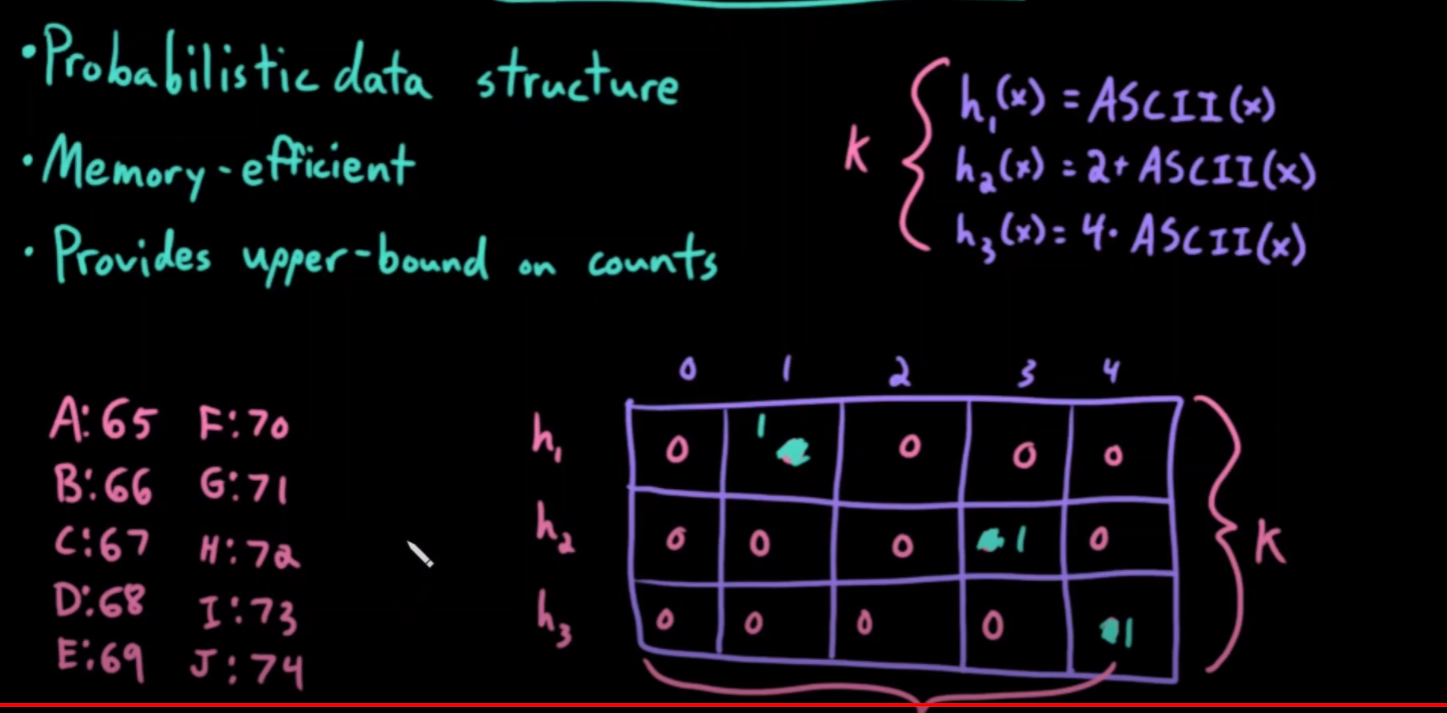 • Probabilistic data structure
• Memory-efficient
• Provides upper-bound on counts
K { h₁(x) = ASCII(x)
h₂(x) = 2+ ASCII(x)
h₃(x) = 4· ASCII(x)
A:65 F:70
B:66 G:71
C:67 H:72
D:68 I:73
E:69 J:74
0 1 2 3 4
h₁ 0 1 0 0 0
h₂ 0 0 0 1 0
h₃ 0 0 0 0 1
K